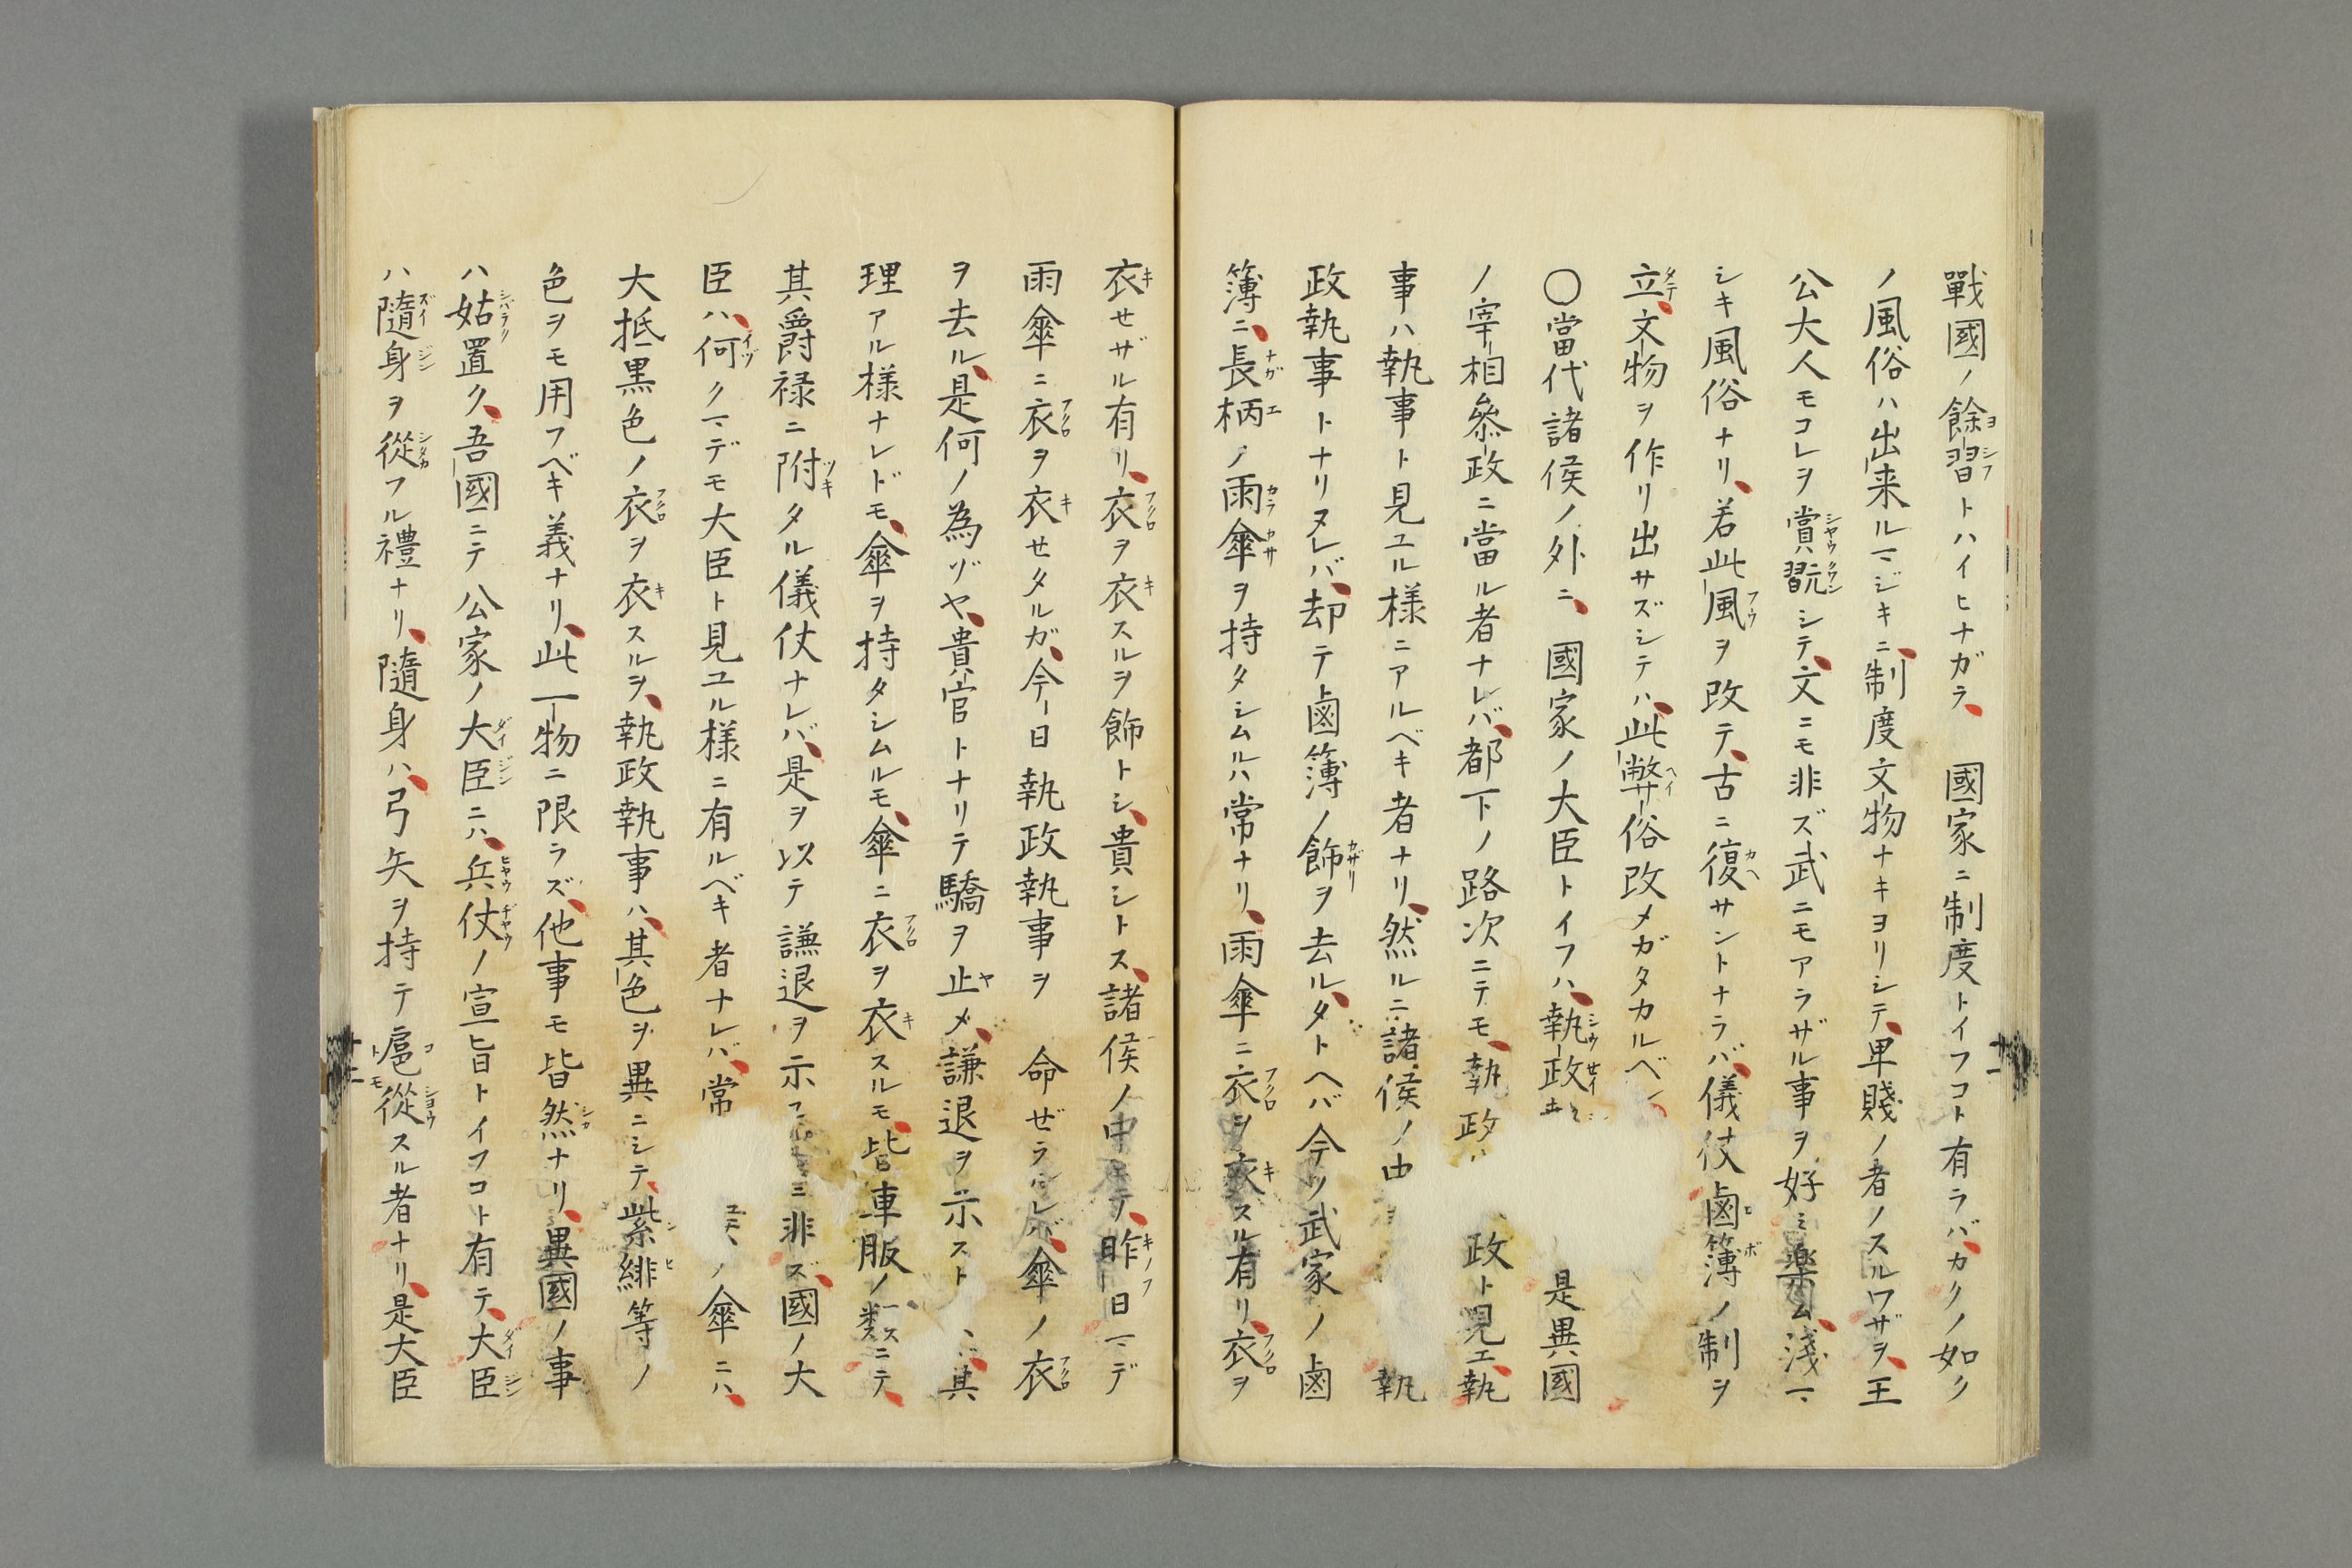 戰國ノ餘習トハイヒナガラ、國家ニ制度トイフコト有ラバ、カクノ如ク
ノ風俗ハ出来ルマジキニ、制度文物ナキヨリシテ、卑賤ノ者ノスルワザヲ、王
公大人モコレヲ賞翫シテ、文ニモ非ズ武ニモアラザル事ヲ好ミ楽ム、淺マ
シキ風俗ナリ、若此風ヲ改テ、古ニ復サントナラバ、儀仗鹵簿ノ制ヲ
立、文物ヲ作リ出サズシテハ、此弊俗改メガタカルベシ、
〇當代諸侯ノ外ニ、國家ノ大臣トイフハ、執政 是異國
ノ宰相參政ニ當ル者ナレバ、都下ノ路次ニテモ、執政ハ 政ト見エ、執
事ハ執事ト見ユル様ニアルベキ者ナリ、然ルニ諸侯ノ中 執
政執事トナリヌレバ、却テ鹵簿ノ飾ヲ去ル、タトヘバ今ノ武家ノ鹵
簿ニ、長柄ノ雨傘ヲ持タシムルハ常ナリ、雨傘ニ衣ヲ衣スル有リ、衣ヲ
衣セザル有リ、衣ヲ衣スルヲ飾トシ、貴シトス、諸侯ノ中ニテ、昨日マデ
雨傘ニ衣ヲ衣セタルガ、今日執政執事ヲ命ゼラルレバ、傘ノ衣
ヲ去ル、是何ノ為ゾヤ、貴官トナリテ驕ヲ止メ、謙退ヲ示スト 、其
理アル様ナレドモ、傘ヲ持タシムルモ、傘ニ衣ヲ衣スルモ、皆車服ノ類ニテ、
其爵禄ニ附タル儀仗ナレバ、是ヲ以テ謙退ヲ示ス ニ非ズ、國ノ大
臣ハ、何クマデモ大臣ト見ユル様ニ有ルベキ者ナレバ、常 ノ傘ニハ、
大抵黒色ノ衣ヲ衣スルヲ、執政執事ハ、其色ヲ異ニシテ、紫緋等ノ
色ヲモ用フベキ義ナリ、此一物ニ限ラズ、他事モ皆然ナリ、異國ノ事
ハ姑置ク、吾國ニテ公家ノ大臣ニハ、兵仗ノ宣旨トイフコト有テ、大臣
ハ隨身ヲ從フル禮ナリ、隨身ハ、弓矢ヲ持テ扈從スル者ナリ、是大臣